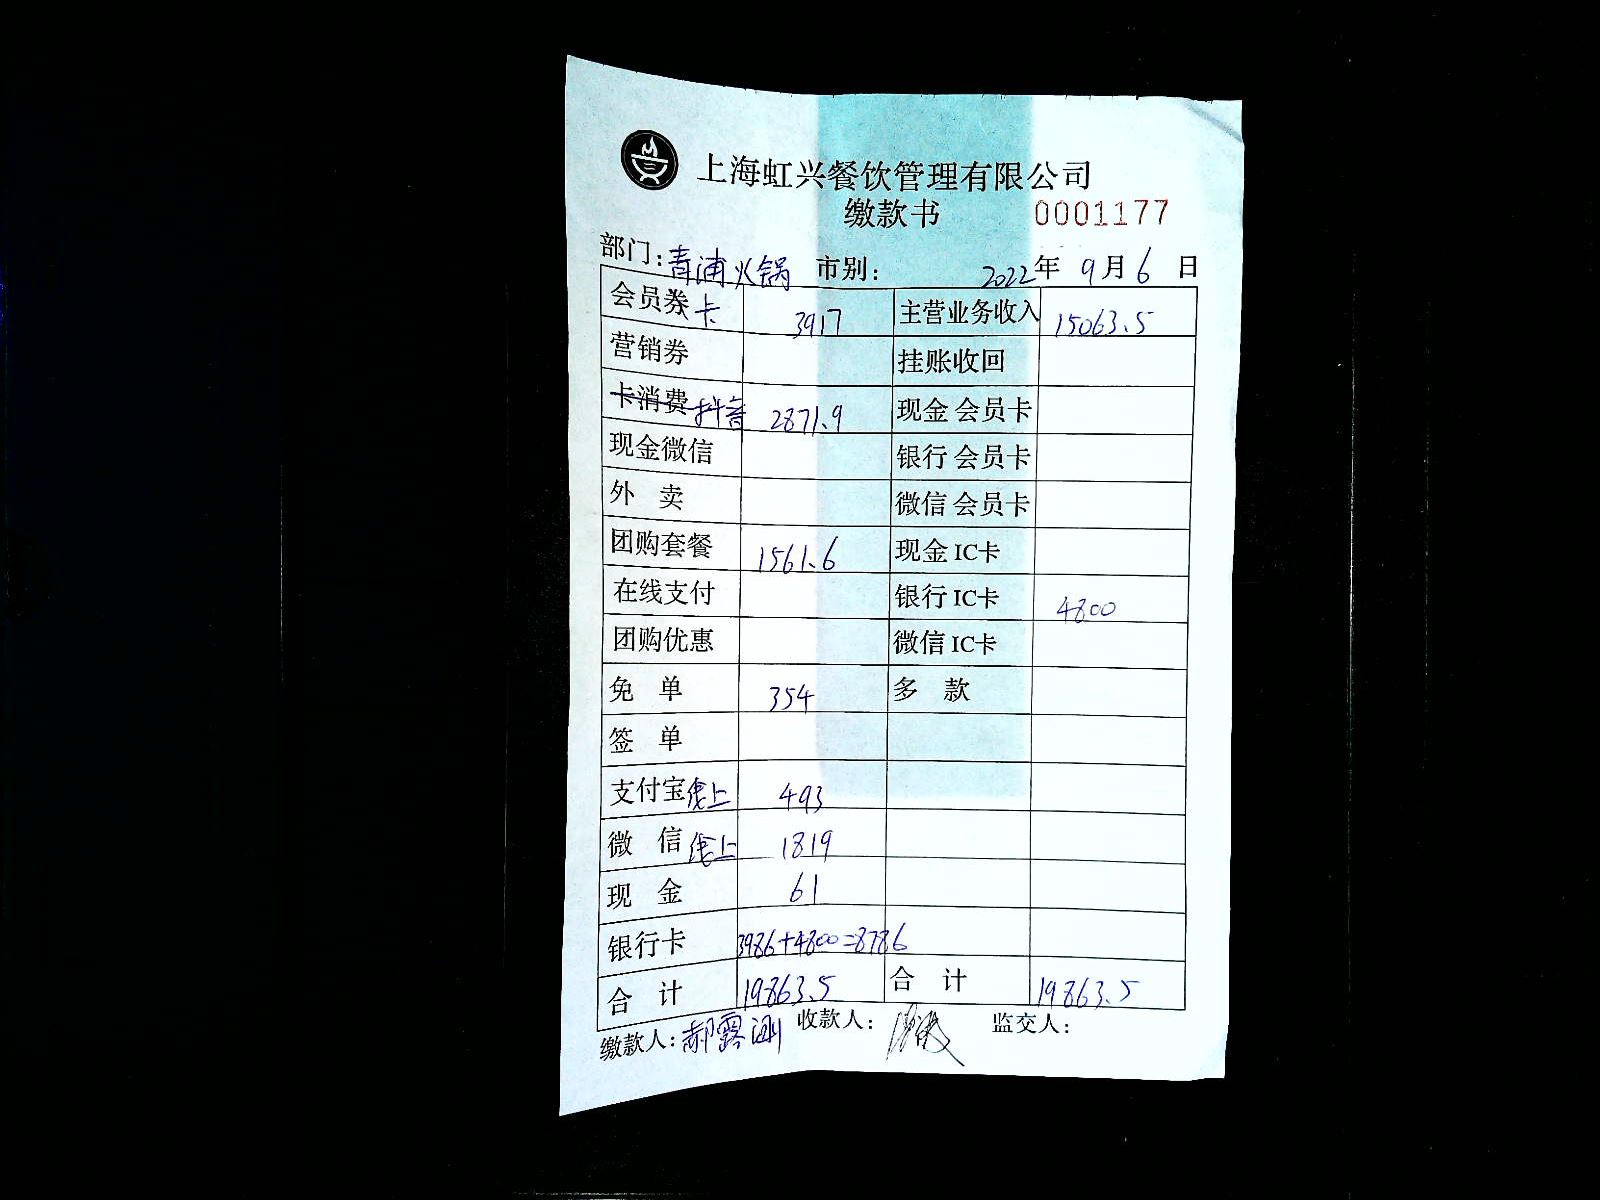 上海虹兴餐饮管理有限公司
缴款书 0001177
部门: 青浦火锅 市别: 2022年9月6日
会员券卡 3917 主营业务收入 15063.5
营销券 挂账收回
卡消费 抖音 2871.9 现金会员卡
现金微信 银行会员卡
外 卖 微信会员卡
团购套餐 1561.6 现金IC卡
在线支付 银行IC卡 4800
团购优惠 微信IC卡
免 单 354 多 款
签 单
支付宝线上 493
微 信线上 1819
现 金 61
银行卡 3986+4800=8786
合 计 19863.5 合 计 19863.5
缴款人: 郝露 收款人: 监交人: